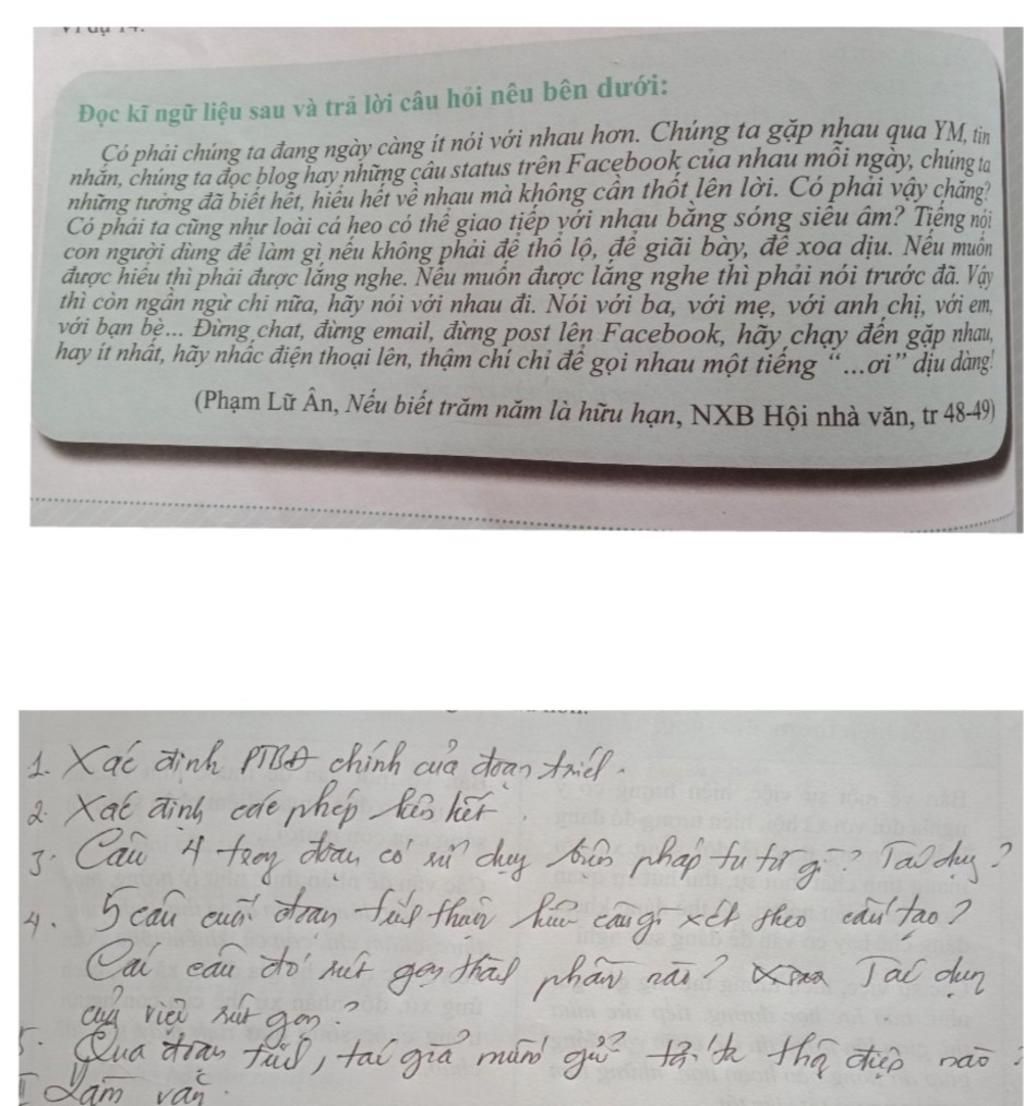 Đọc kĩ ngữ liệu sau và trả lời câu hỏi nêu bên dưới:
Có phải chúng ta đang ngày càng ít nói với nhau hơn. Chúng ta gặp nhau qua YM, tin
nhắn, chúng ta đọc blog hay những câu status trên Facebook của nhau mỗi ngày, chúng ta
những tưởng đã biết hết, hiểu hết về nhau mà không cần thốt lên lời. Có phải vậy chăng?
Có phải ta cũng như loài cá heo có thể giao tiếp với nhau bằng sóng siêu âm? Tiếng nói
con người dùng để làm gì nếu không phải để thổ lộ, để giãi bày, để xoa dịu. Nếu muốn
được hiểu thì phải được lắng nghe. Nếu muốn được lắng nghe thì phải nói trước đã. Vậy
thì còn ngần ngừ chi nữa, hãy nói với nhau đi. Nói với ba, với mẹ, với anh chị, với em,
với bạn bè... Đừng chat, đừng email, đừng post lên Facebook, hãy chạy đến gặp nhau,
hay ít nhất, hãy nhấc điện thoại lên, thậm chí chỉ để gọi nhau một tiếng “...ơi” dịu dàng!
(Phạm Lữ Ân, Nếu biết trăm năm là hữu hạn, NXB Hội nhà văn, tr 48-49)
1. Xác định PTBĐ chính của đoạn trích.
2. Xác định các phép liên kết.
3. Câu 4 trong đoạn có sử dụng biện pháp tu từ gì? Tác dụng?
4. 5 câu cuối đoạn trích thuộc kiểu câu gì xét theo cấu tạo?
Các câu đó rút gọn thành phần nào? Tác dụng
của việc rút gọn?
5. Qua đoạn trích, tác giả muốn gửi tới ta thông điệp nào?
II Làm văn.